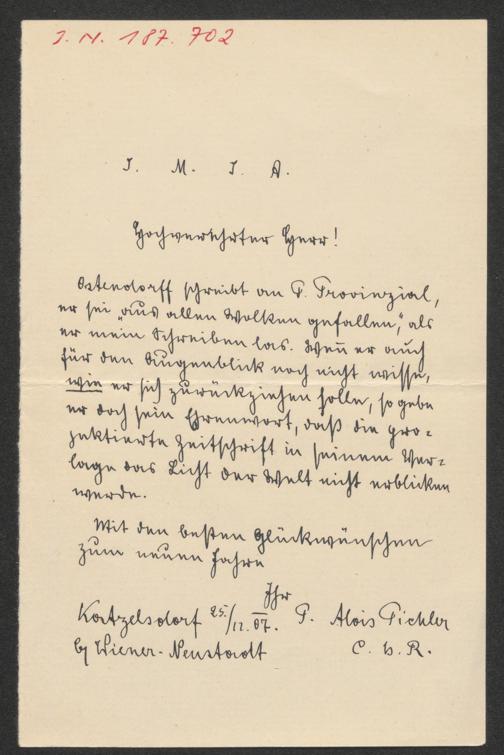 I. N. 187. 702
J. M. J. A.
Hochverehrter Herr!
Ostendorff schreibt an P. Provinzial,
er sei „aus allen Wolken gefallen“, als
er mein Schreiben las. Wen̅ er auch
für den Augenblick noch nicht wisse,
wie er sich zurückziehen solle, so gebe
er doch sein Ehrenwort, daß die pro=
jektierte Zeitschrift in seinem Ver=
lage das Licht der Welt nicht erblicken
werde.
Mit den besten Glückwünschen
zum neuen Jahre
Ihr
Katzelsdorf 25./12. 07. P. Alois Pichler
b/ Wiener-Neustadt C. Ss. R.